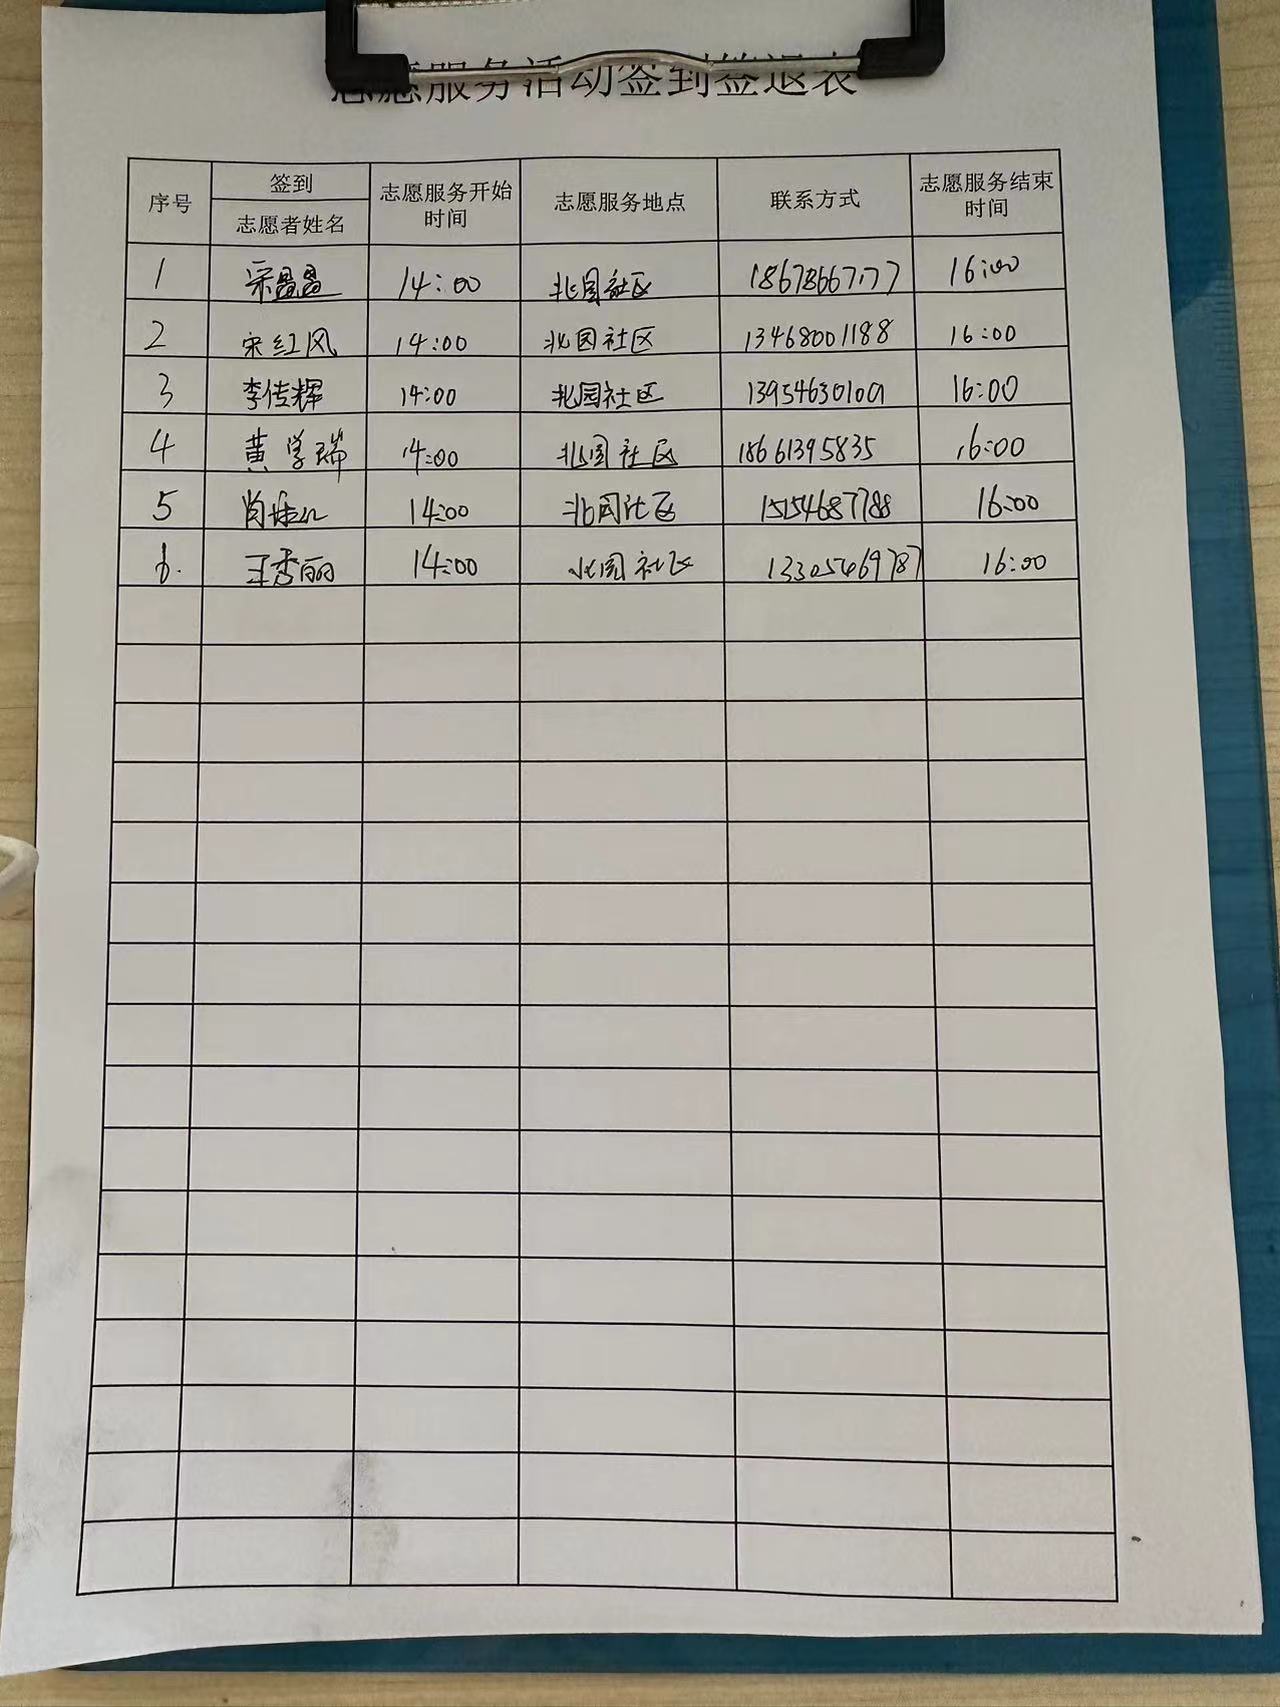 志愿服务活动签到签退表
序号 签到 志愿者姓名 志愿服务开始时间 志愿服务地点 联系方式 志愿服务结束时间
1 宋 14:00 北园社区 16:00
2 宋红风 14:00 北园社区 13468001188 16:00
3 李传辉 14:00 北园社区 13954630109 16:00
4 黄学瑞 14:00 北园社区 18661395835 16:00
5 14:00 北园社区 15154687788 16:00
6. 王秀丽 14:00 北园社区 13305469787 16:00